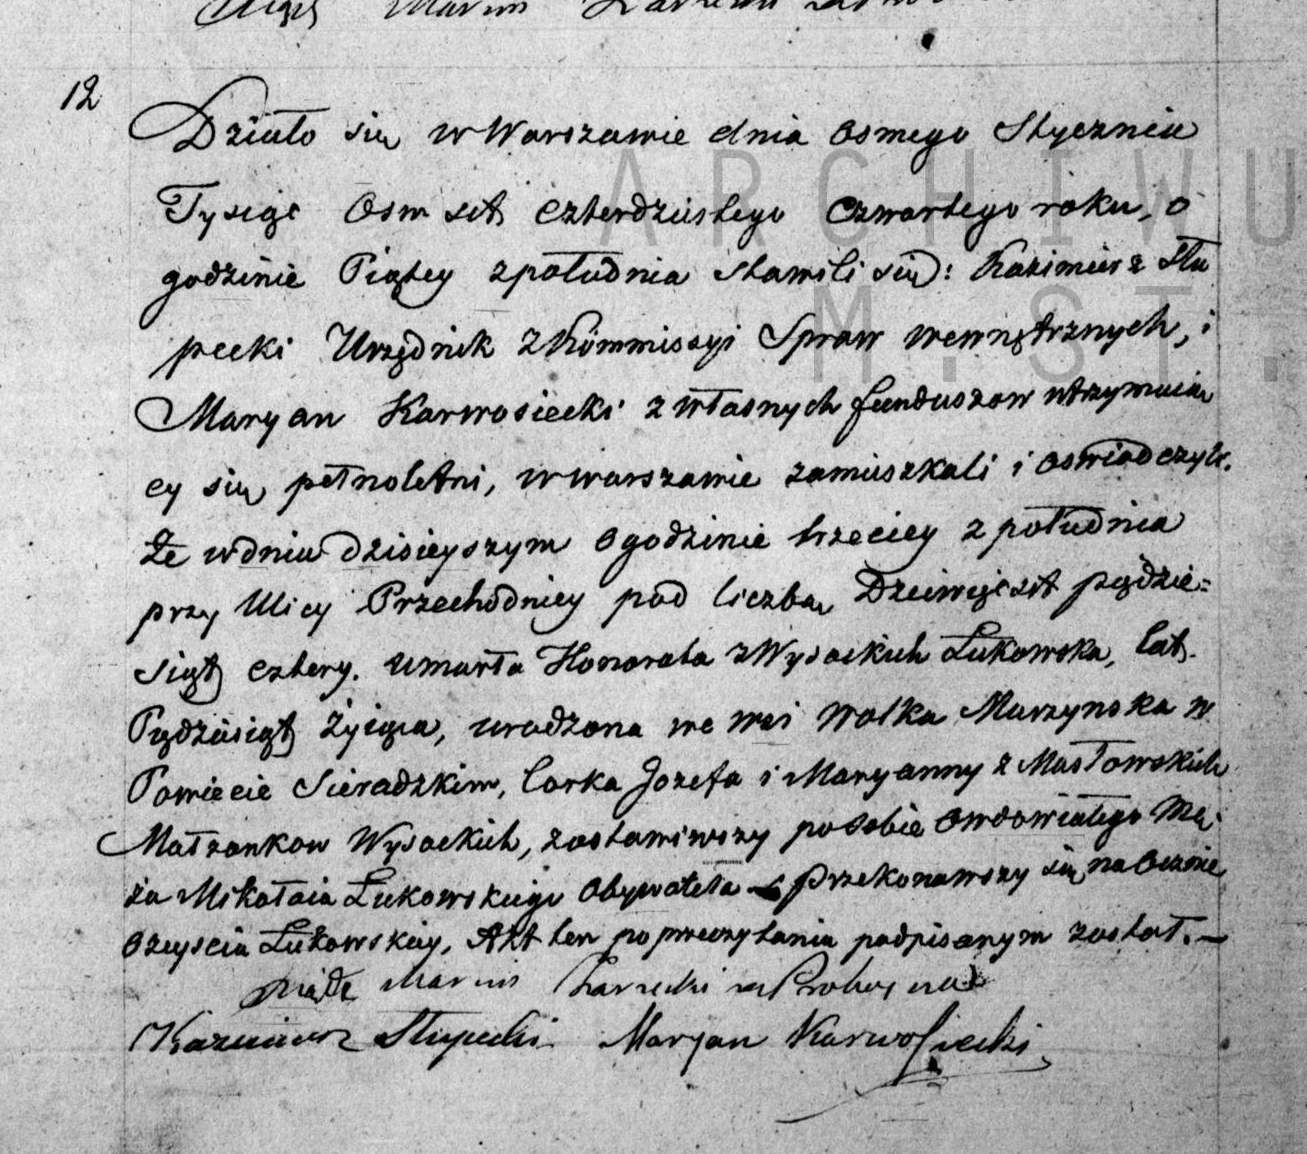 12
Działo się w Warszawie dnia osmego Stycznia
Tysiąc osmset czterdziestego czwartego roku, o
godzinie Piątey z południa stawili się: Kazimierz Słu
pecki Urzędnik z Kommissyi Spraw wewnętrznych, i
Maryan Karwosiecki z własnych funduszow utrzymuią
cy się pełnoletni, w warszawie zamieszkali i oswiadczyli.
że w dniu dzisieyszym o godzinie trzeciey z południa
przy Ulicy Przechodniey pod liczbą Dziewięćset pędzie=
siąt cztery. umarła Honorata z Wysockich Łukowska, lat
Pędziesiąt żyiąca, urodzona we wsi Wolka Marzynska w
Powiecie Sieradzkim, Corka Jozefa i Maryanny z Masłowskich
Małżonkow Wysockich, zostawiwszy po sobie owdowiałego Mę
ża Mikołaia Łukowskiego Obywatela – Przekonawszy się naocznie
o zeysciu Łukowskiey, Akt ten po przeczytaniu podpisanym został. –
Xiądz Marcin
Kazimierz Słupecki Maryan Karwosiecki
ARCHIWU
M. ST.